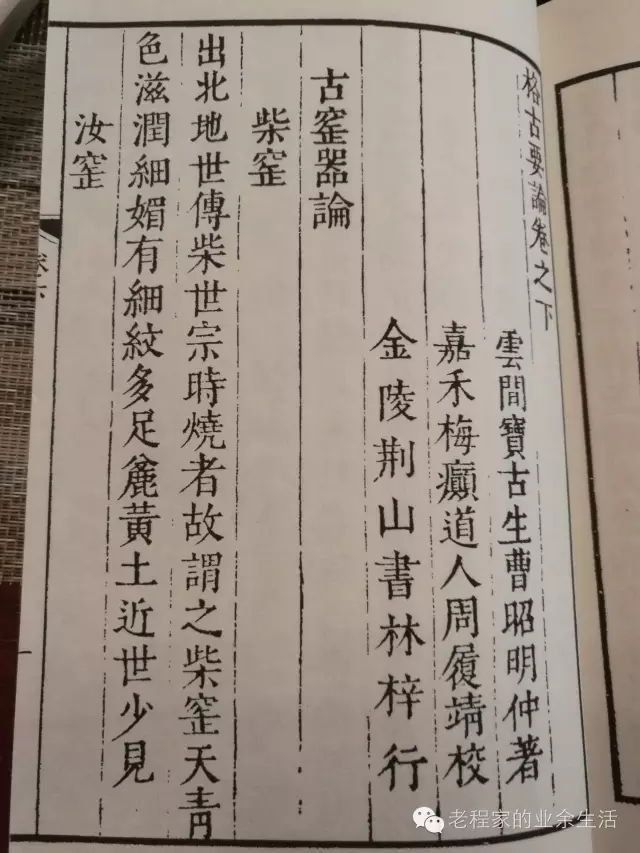 格古要論卷之下
雲間寶古生曹昭明仲著
嘉禾梅癲道人周履靖校
金陵荆山書林梓行
古窑器論
柴窑
出北地世傳柴世宗時燒者故謂之柴窑天青
色滋潤細媚有細紋多足麄黃土近世少見
汝窑
卷六
一
老程家的业余生活